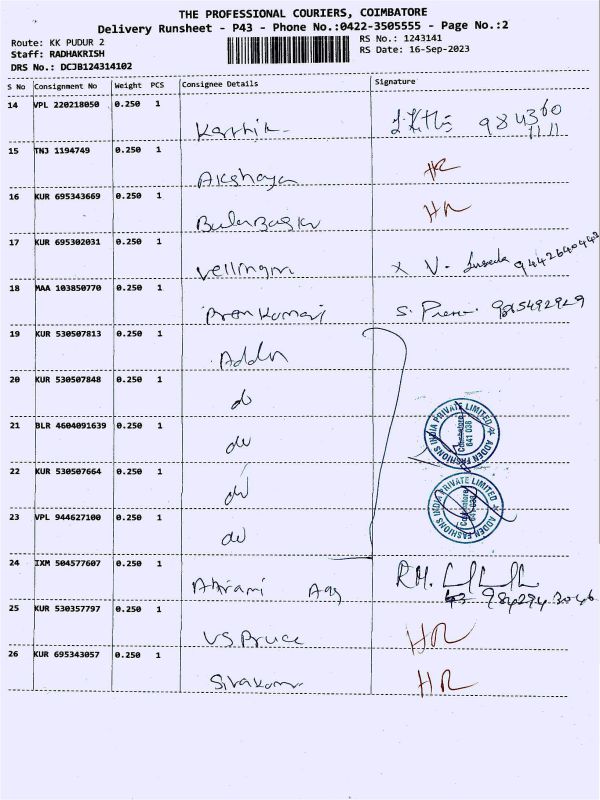 THE PROFESSIONAL COURIERS, COIMBATORE
Delivery Runsheet - P43 - Phone No.:0422-3505555 - Page No.:2
Route: KK PUDUR 2
RS No.: 1243141
Staff: RADHAKRISH
RS Date: 16-Sep-2023
DRS No.: DCJB124314102
S No Consignment No Weight PCS Consignee Details Signature
14 VPL 220218050 0.250 1
Karthik
15 TNJ 1194749 0.250 1
Akshaya HR
16 KUR 695343669 0.250 1
HR
17 KUR 695302031 0.250 1
Vellingiri X V.
18 MAA 103850770 0.250 1
Prem Kumari S. Prema 9815492929
19 KUR 530507813 0.250 1
Addn
20 KUR 530507848 0.250 1
do
21 BLR 4604091639 0.250 1
do
ADDEN FASHIONS INDIA PRIVATE LIMITED
Coimbatore
641 038
22 KUR 530507664 0.250 1
do
ADDEN FASHIONS INDIA PRIVATE LIMITED
Coimbatore
641 038
23 VPL 944627100 0.250 1
do
24 IXM 504577607 0.250 1
Abirami RM.
25 KUR 530357797 0.250 1
VS Pruce HR
26 KUR 695343057 0.250 1
Sivakumar HR